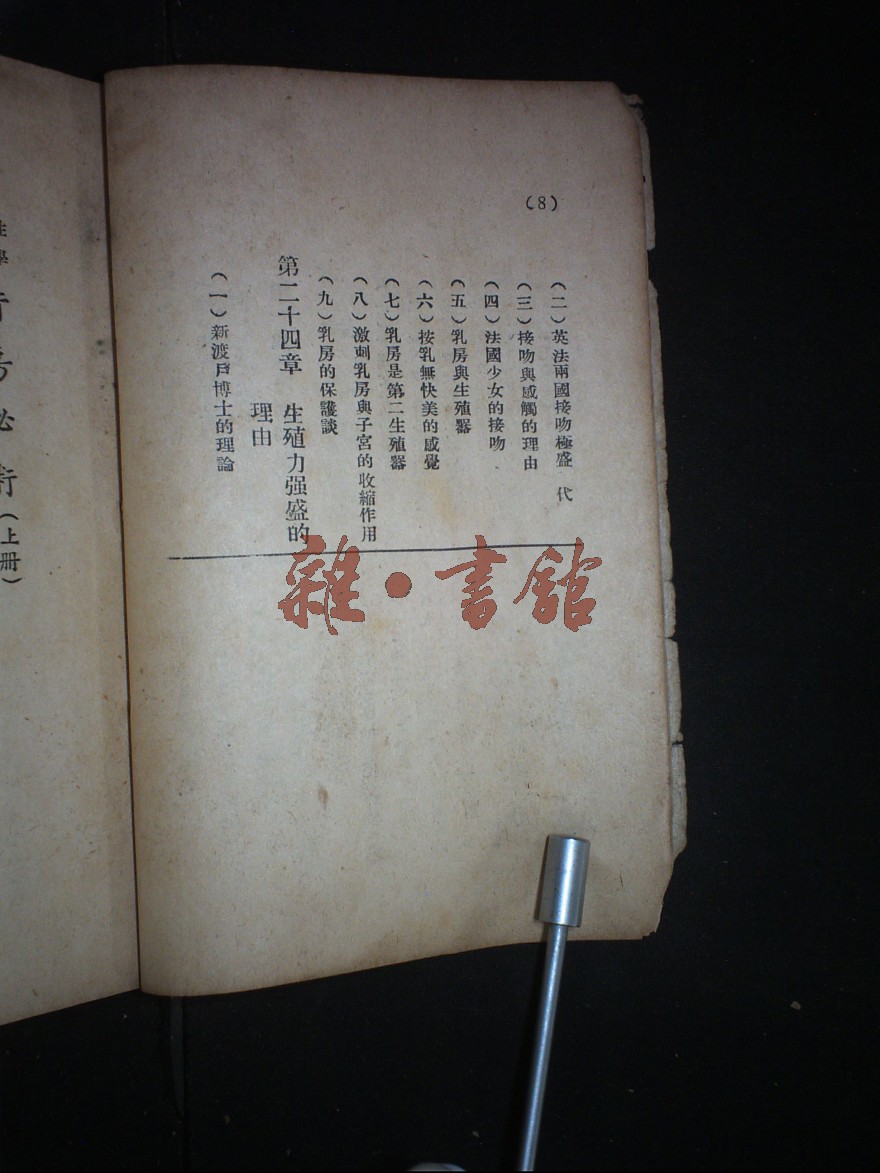 (8)
（二）英法兩國接吻極盛 代
（三）接吻與感觸的理由
（四）法國少女的接吻
（五）乳房與生殖器
（六）按乳無快美的感覺
（七）乳房是第二生殖器
（八）激刺乳房與子宮的收縮作用
（九）乳房的保護談
第二十四章 生殖力强盛的
理由
（一）新渡戶博士的理論
雜·書館
術（上册）